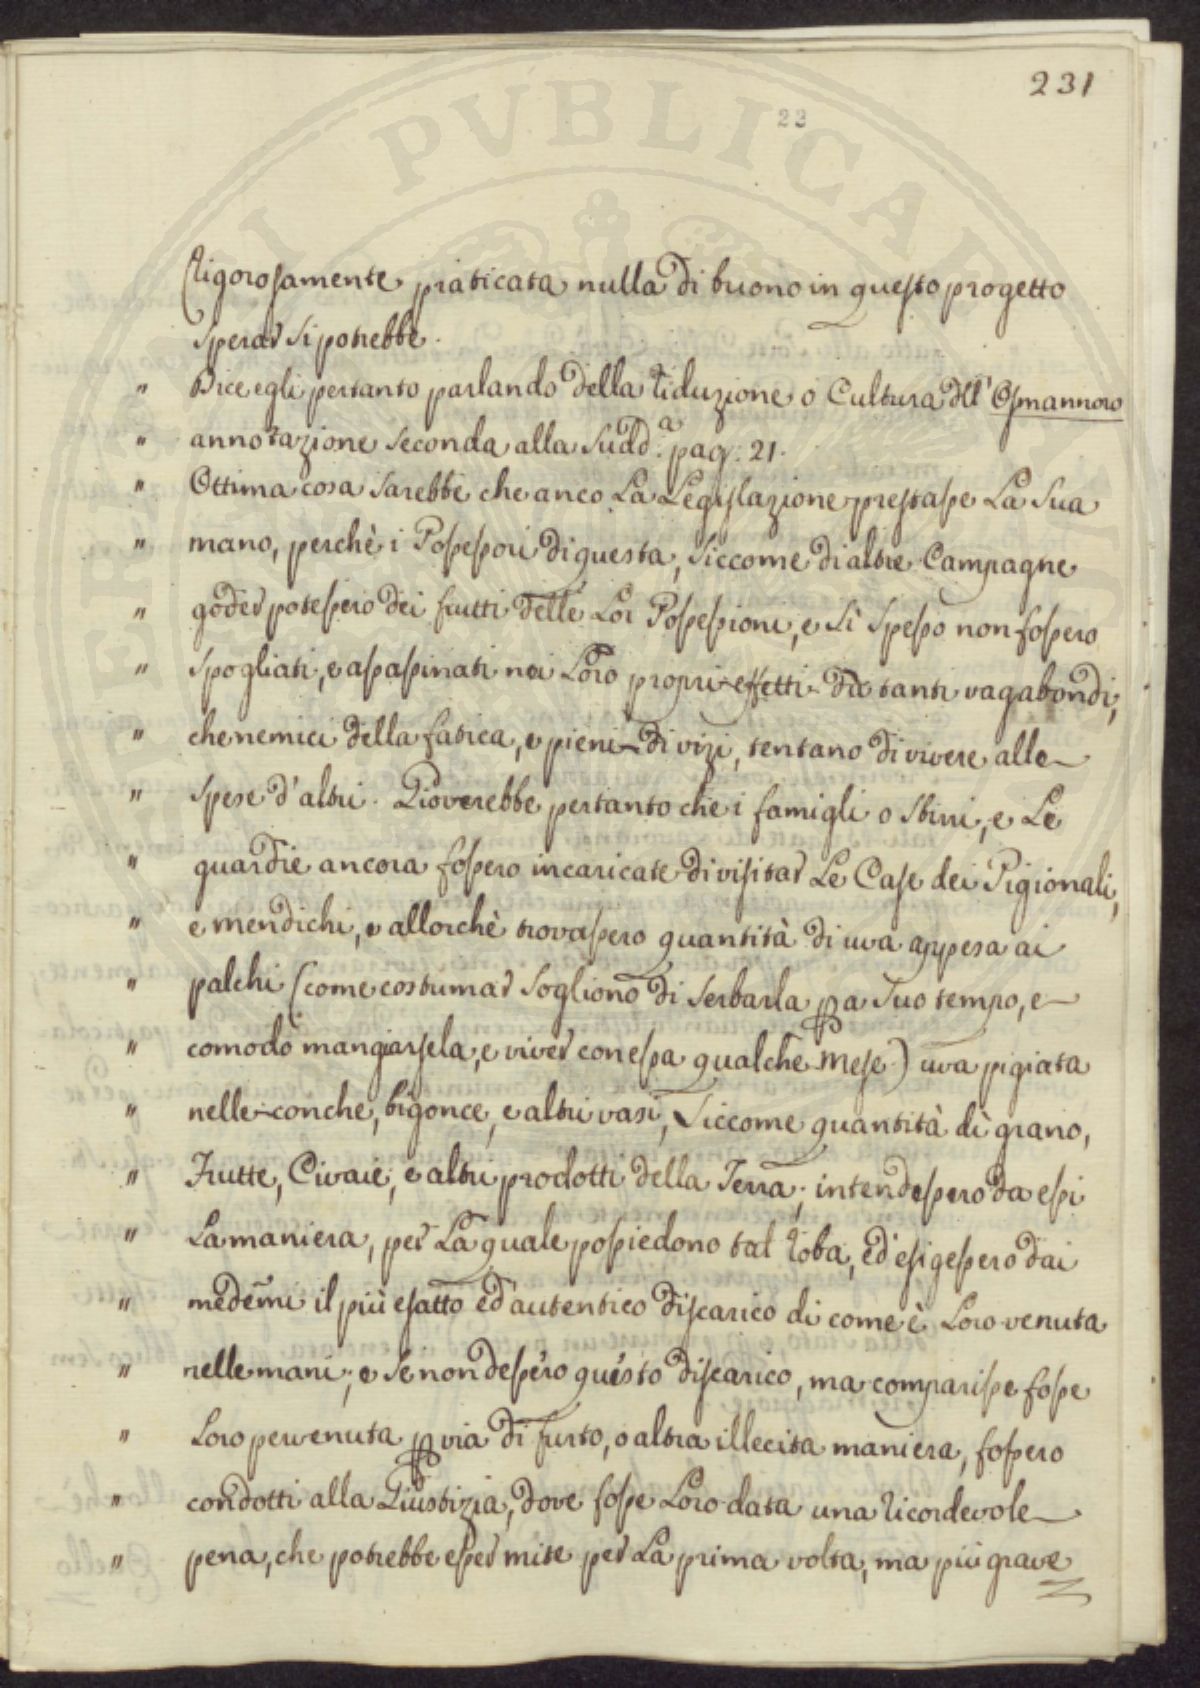 231
23
Rigorosamente praticata nulla di buono in questo progetto
sperar si potrebbe.
" Dice egli pertanto parlando della riduzione o Cultura dell' Osmannoro
" annotazione seconda alla Sudd.ª pag: 21.
" Ottima cosa sarebbe che anco La Legislazione prestasse La Sua
" mano, perchè i Possessori di questa, siccome di altre Campagne
" goder potessero dei frutti delle Lor Possessioni, e sì spesso non fossero
" spogliati, e assassinati nei Loro propri effetti da tanti vagabondi,
" che nemici della fatica, e pieni di vizi, tentano di vivere alle
" spese d'altri. Gioverebbe pertanto che i famigli o sbirri, e Le
" guardie ancora fossero incaricate di visitar Le Case dei Pigionali,
" e mendichi, e allorchè trovassero quantità di uva appesa ai
" palchi (come costumar sogliono di serbarla p a suo tempo, e
" comodo mangiarsela, e viver con essa qualche mese) uva pigiata
" nelle conche, bigonce, e altri vasi, siccome quantità di grano,
" Frutte, Civaie, e altri prodotti della Terra; intendessero da essi
" La maniera, per La quale possiedono tal roba, ed esigessero dai
" medemi il più esatto ed autentico discarico di come è Loro venuta
" nelle mani; e se non dessero questo discarico, ma comparisse fosse
" Loro pervenuta p via di furto, o altra illecita maniera, fossero
" condotti alla Giustizia, dove fosse Loro data una ricordevole
" pena, che potrebbe esser mite per La prima volta, ma più grave